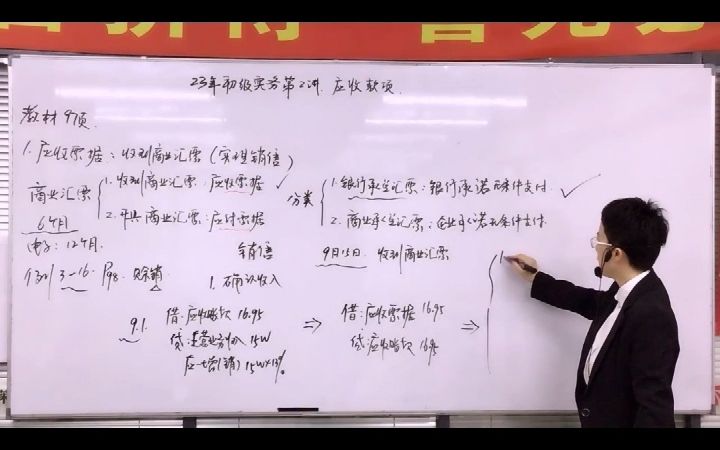 23年初级实务第2讲 应收款项
教材97页
1. 应收票据：收到商业汇票（实现销售）
商业汇票
1. 收到商业汇票：应收票据 ✓
2. 开具商业汇票：应付票据
分类
1. 银行承兑汇票：银行承诺无条件支付 ✓
2. 商业承兑汇票：企业承诺无条件支付
6个月
电子：12个月
例 3-16 P98 赊销
销售
1. 确认收入
9月15日 收到商业汇票
9.1.
借：应收账款 16.95
贷：主营业务收入 15W
应-增(销) 15W×13%
⇒
借：应收票据 16.95
贷：应收账款 16.95
⇒